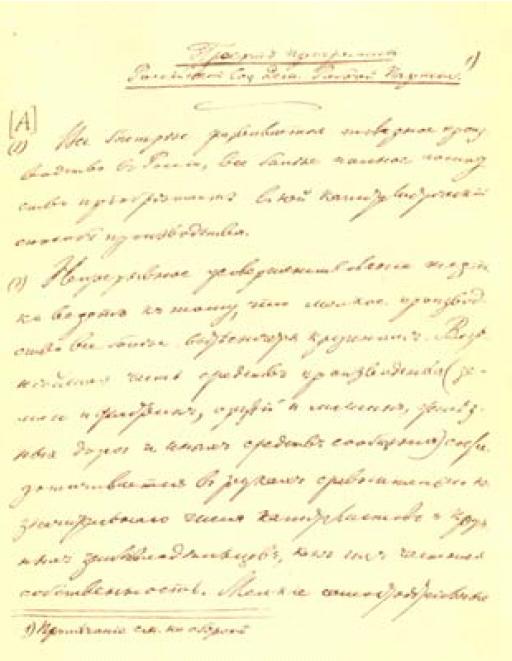 Проектъ программы
Россійской Соц. дем. Рабочей Партіи. 1)
[А]
(1) Все быстрѣе развивается товарное произ
водство в Россіи, все болѣе полное господ
ство пріобрѣтаетъ в ней капиталистическій
способ производства.
(2) Непрерывное усовершенствованіе техни
ки ведетъ къ тому, что мелкое производ
ство все болѣе вытѣсняется крупнымъ. Важ
нѣйшая часть средствъ производства (зе-
мли и фабрикъ, орудій и машинъ, желѣз
ныхъ дорог и иныхъ средствъ сообщенія) сосре
доточивается в рукахъ сравнительно не
значительнаго числа капиталистовъ и круп
ныхъ землевладѣльцевъ, какъ ихъ частная
собственность. Мелкіе самостоятельные
1) Примѣчаніе см. на оборотѣ